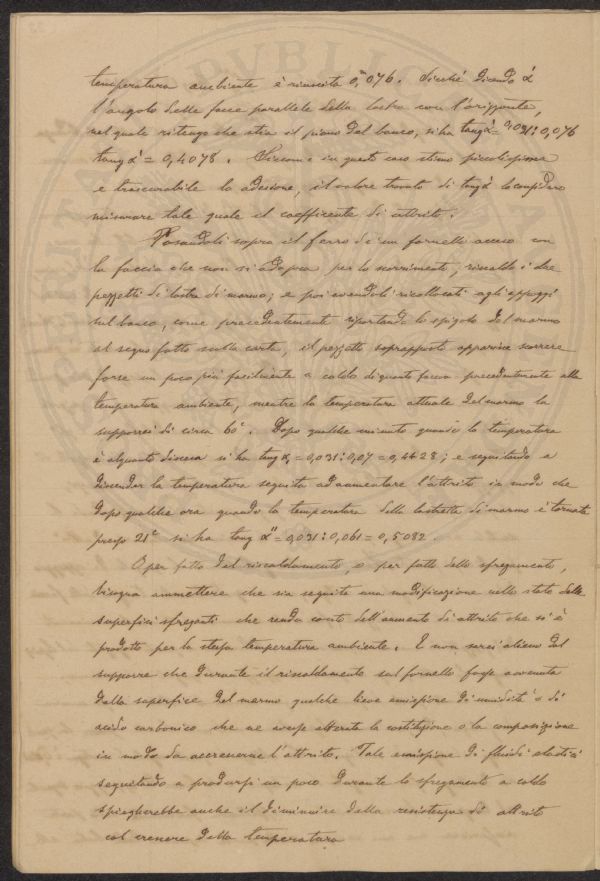 temperatura ambiente è riuscita 0,ᵐ076. Sicché dicendo α'
l'angolo delle facce parallele della lastra con l'orizzonte,
nel quale ritengo che stia il piano del banco, si ha tang α' = 0,031 : 0,076
tang α' = 0,4078. Siccome in questo caso stimo piccolissima
e trascurabile la adesione, il valore trovato di tang α' lo considero
misurare tale quale il coefficente di attrito.
Posandoli sopra il ferro di un fornello acceso con
la faccia che non si adopra per lo scorrimento, riscaldo i due
pezzetti di lastra di marmo; e poi avendoli ricollocati agli appoggi
sul banco, come precedentemente riportando lo spigolo del marmo
al segno fatto sulla carta, il pezzetto soprapposto apparisce scorrere
forse un poco più facilmente a caldo di quanto faceva precedentemente alla
temperatura ambiente, mentre la temperatura attuale del marmo la
supporrei di circa 60°. Dopo qualche minuto quando la temperatura
è alquanto discesa si ha tang α, = 0,031 : 0,07 = 0,4428; e seguitando a
discender la temperatura seguita ad aumentare l'attrito in modo che
dopo qualche ora quando la temperatura delle lastrette di marmo è tornata
presso 21° si ha tang α'' = 0,031 : 0,061 = 0,5082.
O per fatto del riscaldamento, o per fatto dello sfregamento,
bisogna ammettere che sia seguita una modificazione nello stato delle
superfici sfreganti che renda conto dell'aumento di attrito che si è
prodotto per la stessa temperatura ambiente. E non sarei alieno dal
supporre che durante il riscaldamento sul fornello fosse avvenuta
dalla superfice del marmo qualche lieve emissione di umidità o di
acido carbonico che ne avesse alterata la costituzione o la composizione
in modo da accrescerne l'attrito. Tale emissione di fluidi elastici
seguitando a prodursi un poco durante lo sfregamento a caldo
spiegherebbe anche il diminuire della resistenza di attrito
col crescere della temperatura